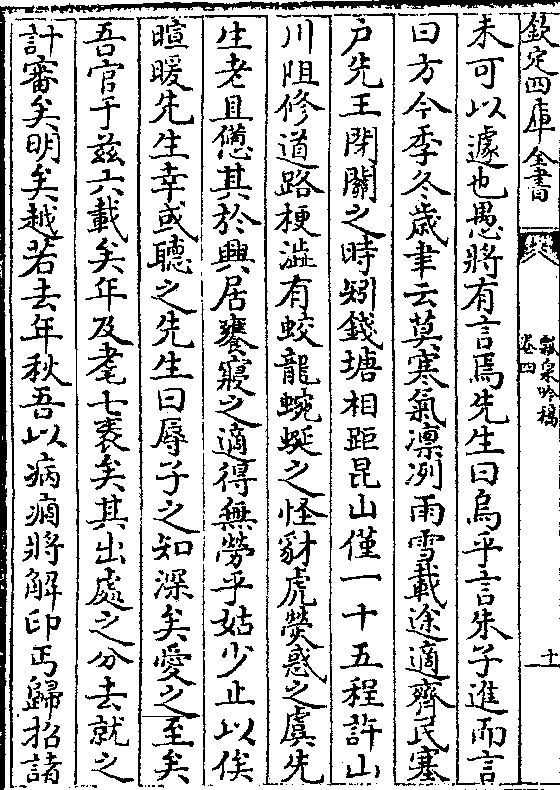 欽定四庫全書
瓢泉吟稿
卷四
十
未可以遽也愚將有言焉先生曰烏乎言朱子進而言
曰方今季冬歲聿云莫寒氣凛冽雨雪載途適齊民塞
户先王閉關之時矧錢塘相距昆山僅一十五程許山
川阻修道路梗澁有蛟龍蜿蜒之怪豺虎熒惑之虞先
生老且憊其於興居饔寢之適得無勞乎姑少止以俟
暄暖先生幸或聽之先生曰辱子之知深矣愛之至矣
吾官于兹六載矣年及耄七袠矣其出處之分去就之
計審矣明矣越若去年秋吾以病痼將解印丐歸招諸